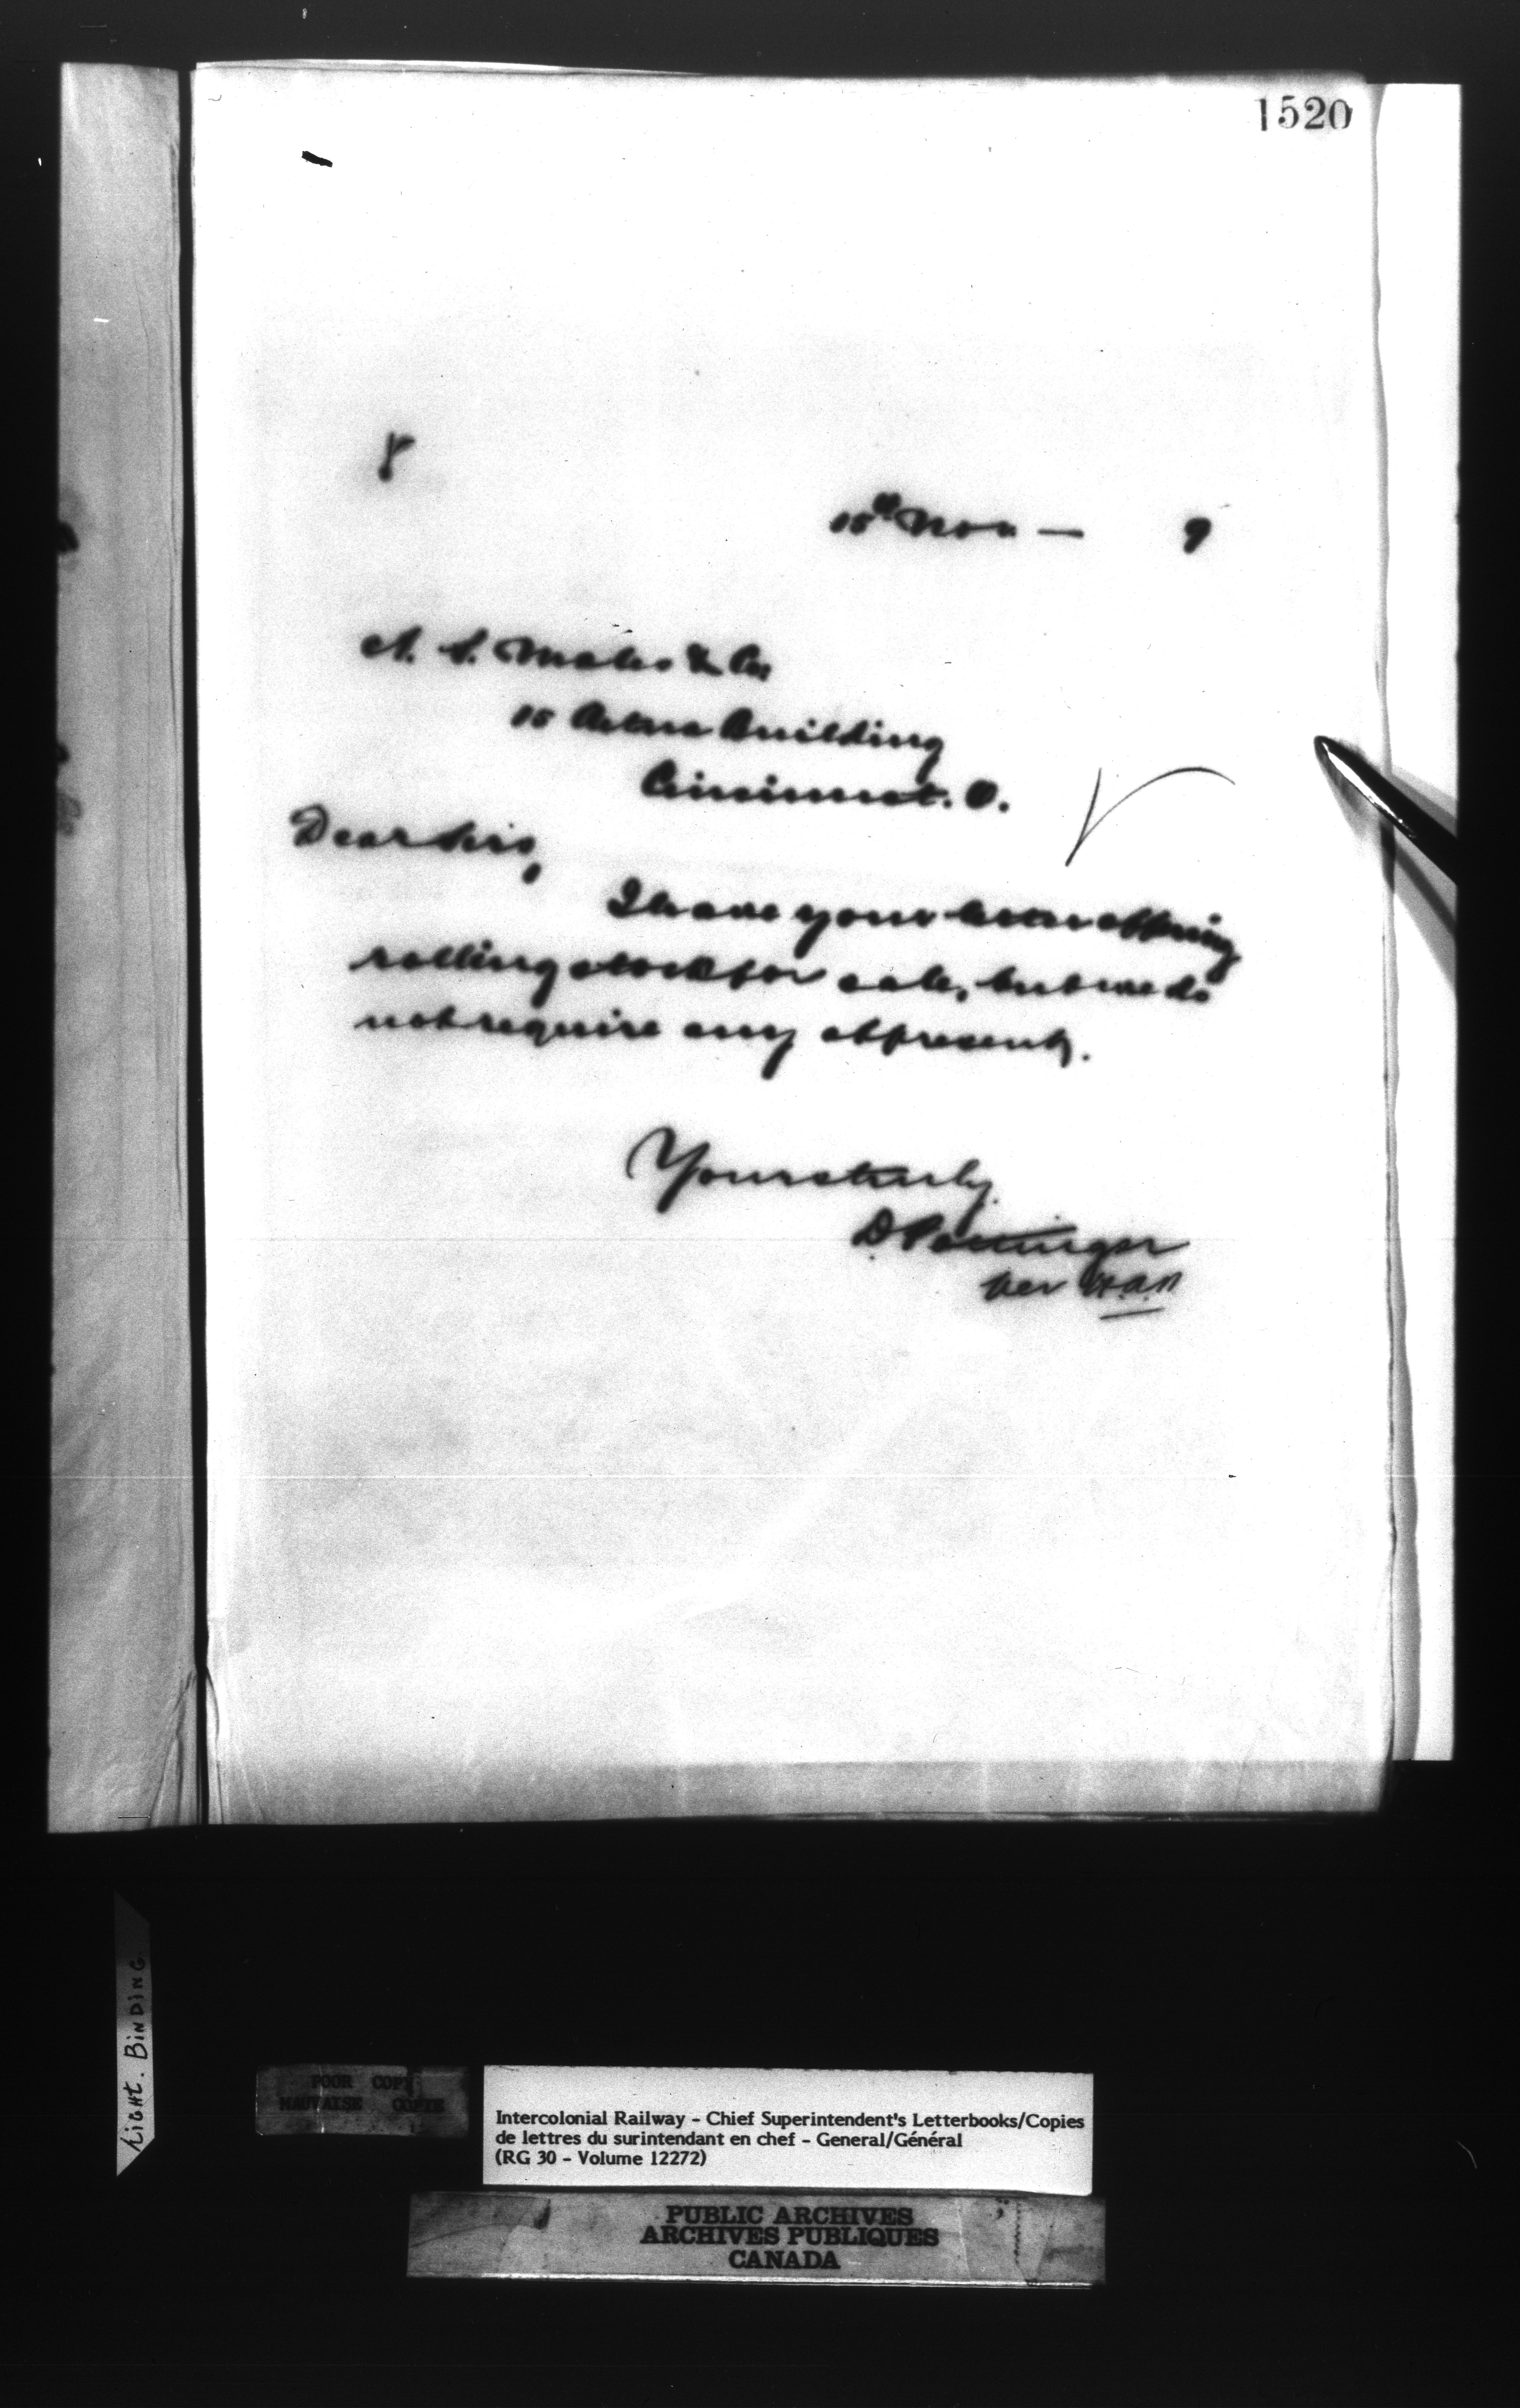 1520
15th Nov — 9
A. S. Males & Co
15 Aetna Building
Cincinnat. O.
Dear Sirs,
I have your letter offering
rolling stock for sale, but we do
not require any at present.
Yours truly
D Pottinger
per
Light. Binding
POOR COPY
MAUVAISE COPIE
Intercolonial Railway - Chief Superintendent's Letterbooks/Copies
de lettres du surintendant en chef - General/Général
(RG 30 - Volume 12272)
PUBLIC ARCHIVES
ARCHIVES PUBLIQUES
CANADA